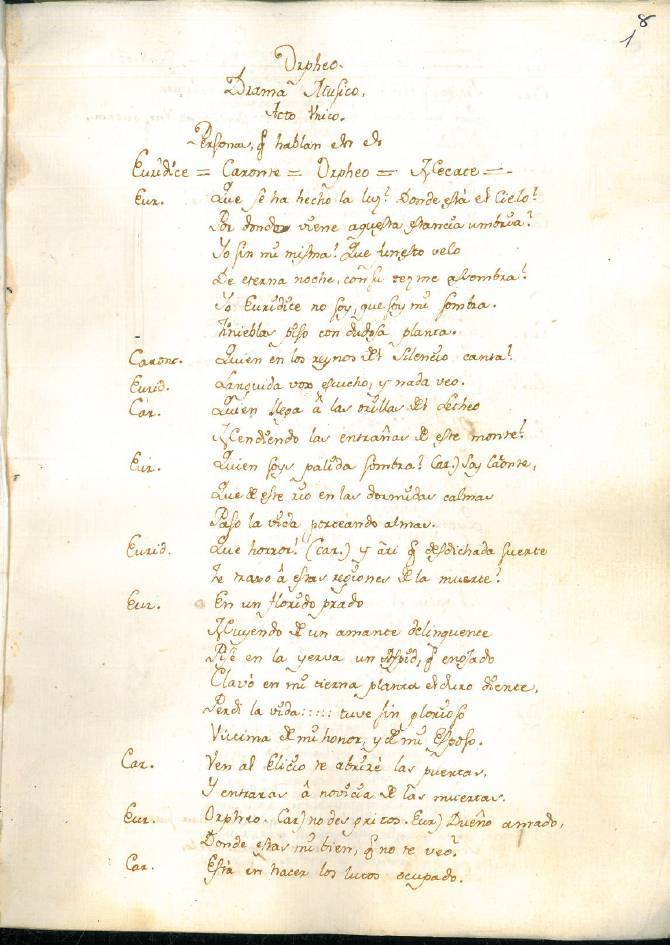 8
1
Orpheo.
Drama Musico.
Acto Unico.
Personas, q̃ hablan
Euridice = Caronte = Orpheo = Hecate =
Eur. Que se ha hecho la luz? Donde está el Cielo?
Por donde viene aquesta estancia umbria?
Yo sin mi misma? Que funesto velo
De eterna noche, con su tez me assombra?
Yo Euridice no soy, que soy mi sombra.
Tinieblas piso con dudosa planta.
Caronc. Quien en los reynos del Silencio canta?
Eurid. Languida voz escucho, y nada veo.
Car. Quien llega â las orillas del Lecheo
Hendiendo las entrañas de este monte?
Eur. Quien soys palida sombra? Car.) Soy Caronte,
Que de este rio en las dormidas calmas
Paso la vida porteando almas.
Eurid. Que horror! (Car.) y â ti q̃ desdichada suerte
Te traxo â estas regiones de la muerte?
Eur. En un florido prado
Huyendo de un amante delinquente
Pisè en la yerva un Aspid, q̃ enojado
Clavó en mi tierna planta el duro diente,
Perdi la vida::::: tuve fin glorioso
Victima de mi honor, y de mi Esposo.
Car. Ven al Elicio te abriré las puertas,
Y entraras â novicia de las muertas.
Eur. Orpheo. Car) no des gritos. Eur) Dueño amado,
Donde estas mi bien, q̃ no te veo?
Car. Està en hacer los lutos ocupado.